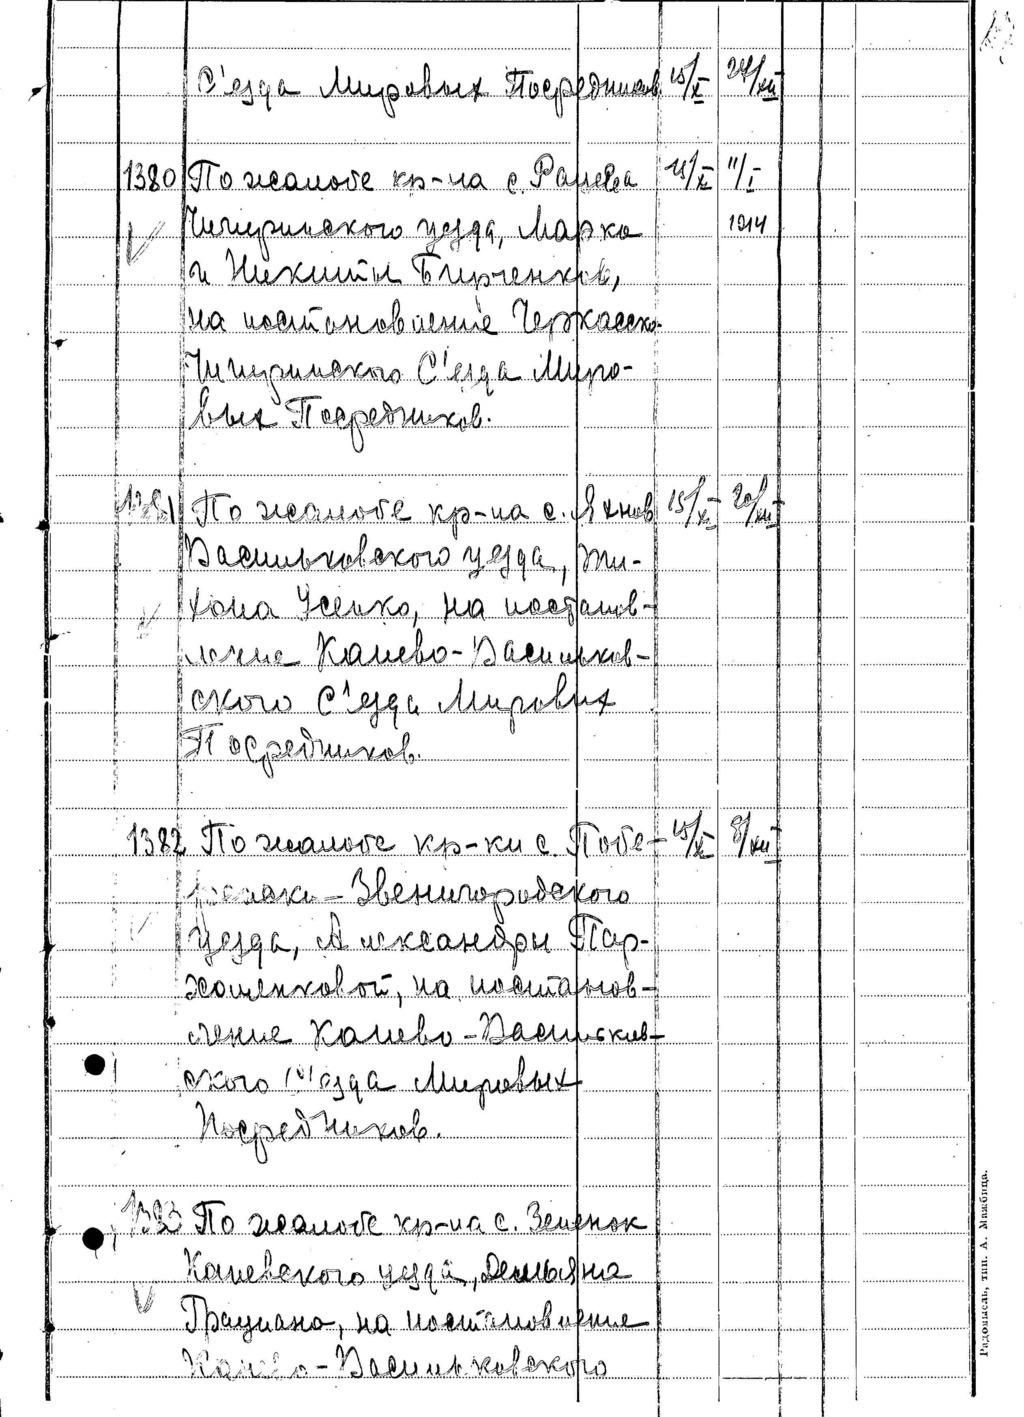 С'езда Мировых Посредников 15/X 24/XII
1380 По жалобе кр-на с. Рацева 15/X 11/I
Чигиринского уезда, Марка 1914
и Никиты Бирченков,
на постановление Черкасско-
Чигиринского С'езда Миро-
вых Посредников.
1381 По жалобе кр-на с. Яхнов 15/XI 20/XII
Васильковского уезда, Ти-
хона Усенко, на постанов-
ление Канево-Васильков-
ского С'езда Мировых
Посредников.
1382 По жалобе кр-ки с. Побе- 15/XI 8/XII
Звенигородского
уезда, Александры Пар-
хоменковой, на постанов-
ление Канево-Васильков-
ского С'езда Мировых
Посредников.
1383 По жалобе кр-на с. Зеленок
Каневского уезда, Демьяна
на постановление
Канево-Васильковского
Радомысль, тип. А. Мажбица.